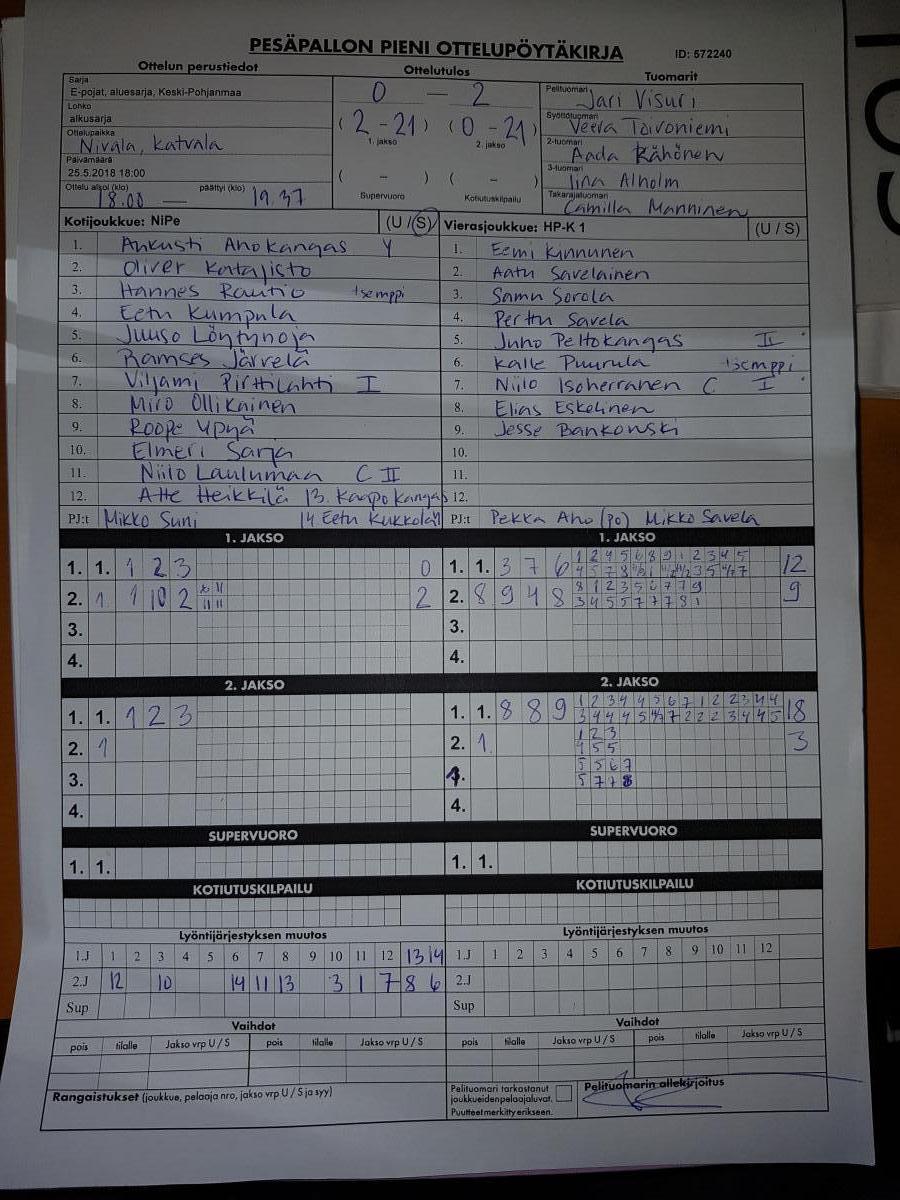 PESÄPALLON PIENI OTTELUPÖYTÄKIRJA
ID: 572240
Ottelun perustiedot
Sarja
E-pojat, aluesarja, Keski-Pohjanmaa
Lohko
alkusarja
Ottelupaikka
Nivala, Katvala
Päivämäärä
25.5.2018 18:00
Ottelu alkoi (klo) päättyi (klo)
18.00 — 19.37
Ottelutulos
0 — 2
(2-21) (0-21)
1. jakso 2. jakso
( - ) ( - )
Supervuoro Kotiutuskilpailu
Tuomarit
Pelituomari
Jari Visuri
Syöttötuomari
Veera Toivoniemi
2-tuomari
Aada Kähönen
3-tuomari
Iina Alholm
Takarajatuomari
Camilla Manninen
Kotijoukkue: NiPe (U / S)
1. Aukusti Ahokangas Y
2. Oliver Katajisto
3. Hannes Rautio tsemppi
4. Eetu Kumpula
5. Juuso Löytynoja
6. Ramses Järvelä
7. Viljami Pirttilahti I
8. Miro Ollikainen
9. Roope Ypyä
10. Elmeri Sarja
11. Niilo Laulumaa C II
12. Atte Heikkilä 13. Kaapo Kangas
PJ:t Mikko Suni 14. Eetu Kukkola
Vierasjoukkue: HP-K 1 (U / S)
1. Eemi Kinnunen
2. Aatu Savelainen
3. Samu Sorola
4. Perttu Savela
5. Juho Peltokangas II
6. Kalle Puurula tsemppi
7. Niilo Isoherranen C I
8. Elias Eskelinen
9. Jesse Bankowski
10.
11.
12.
PJ:t Pekka Aho (po) Mikko Savela
1. JAKSO
1. 1. 1 2 3 0
2. 1 1 10 2 2
3.
4.
1. JAKSO
1. 1. 3 7 6 1 2 4 5 6 8 9 1 2 3 4 5 12
2. 8 9 4 8 8 1 2 3 5 6 7 7 9 9
3 4 5 5 7 7 7 8 1
3.
4.
2. JAKSO
1. 1. 1 2 3
2. 1
3.
4.
2. JAKSO
1. 1. 8 8 9 1 2 3 4 4 5 6 7 1 2 2 3 4 4 18
2. 1. 1 2 3 3
4 5 5
5 5 6 7
5 7 7 8
4.
SUPERVUORO
1. 1.
SUPERVUORO
1. 1.
KOTIUTUSKILPAILU
KOTIUTUSKILPAILU
Lyöntijärjestyksen muutos
1.J 1 2 3 4 5 6 7 8 9 10 11 12 13 14
2.J 12 10 14 11 13 3 1 7 8 6
Sup
Lyöntijärjestyksen muutos
1.J 1 2 3 4 5 6 7 8 9 10 11 12
2.J
Sup
Vaihdot
pois tilalle Jakso vrp U / S pois tilalle Jakso vrp U / S
Vaihdot
pois tilalle Jakso vrp U / S pois tilalle Jakso vrp U / S
Rangaistukset (joukkue, pelaaja nro, jakso vrp U / S ja syy)
Pelituomari tarkastanut
joukkueiden pelaajaluvat.
Puutteet merkitty erikseen.
Pelituomarin allekirjoitus